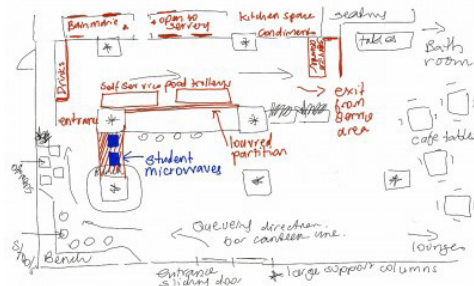 Bainmarie
open to
servery
kitchen space
Condiments
seating
tables
Bath
room
Drinks
self service food trolleys
entrance
exit
from
area
louvred
partition
student
microwaves
cafe table
Queueing direction
for canteen line.
lounges
Bench
entrance
sliding door
* large support columns